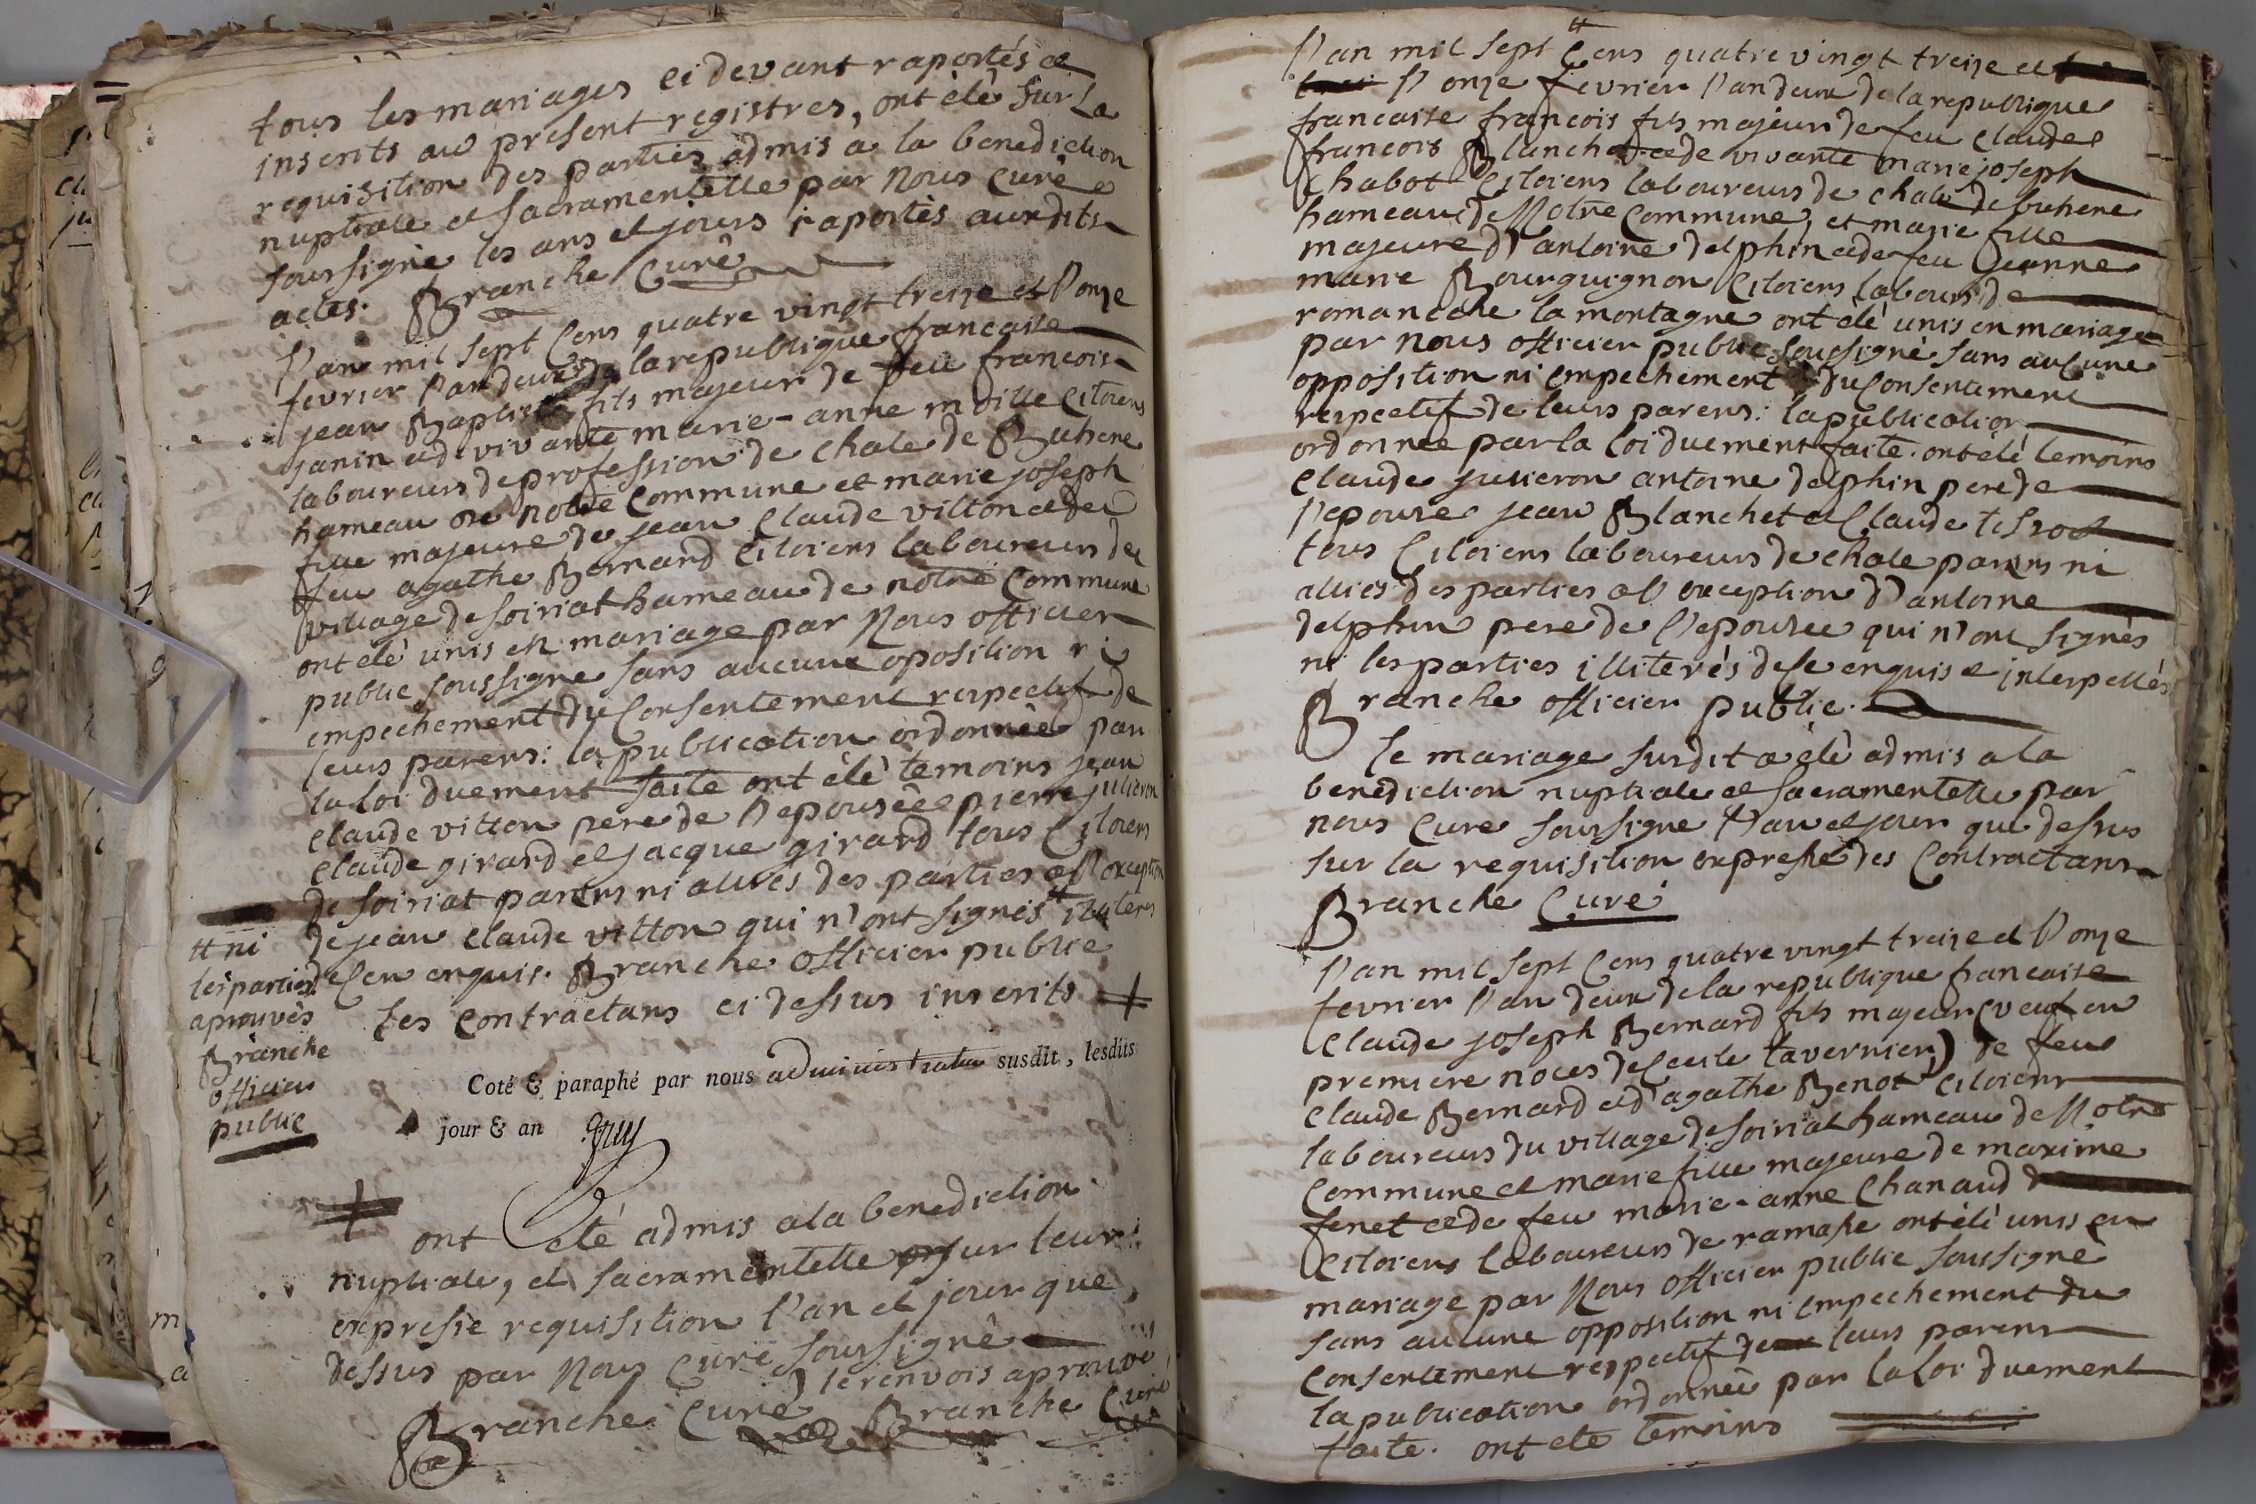 tous les mariages ci devant raportés et
inscrits au present registres, ont été sur la
requisition des parties admis a la benediction
nuptiale et sacramentelle par nous curé
soussigné les ans et jours raportès auxdits
actes. Branche Curé
L'an mil sept Cens quatre vingt treize et L'onze
fevrier L'an deux de la republique francaise
jean Baptiste fils majeur de feu francois
janin et de vivante marie-anne moille Citoiens
laboureurs de profession de chale de Buhene
hameau de notre Commune et marie joseph
fille majeure de jean Claude vitton et de
feu agathe Bernard Citoiens laboureurs de
village de soiriat hameau de notre Commune
ont été unis en mariage par Nous officier
public soussigne sans aucune oposition ni
empechement du Consentement respectif de
leurs parens: la publication ordonnée par
la loi duement faite ont été temoins jean
Claude vitton pere de l'epousée pierre julieron
Claude girard et jacque girard tous Citoiens
de soiriat parens ni alliés des parties a l'exception
de jean Claude vitton qui n'ont signés # illiteres
de ce enquis. Branche officier public
# ni
les parties
aprouvés
Branche
officier
public
Les Contractans ci dessus inscrits ‡
Coté & paraphé par nous administrateur susdit, lesdits
jour & an
‡
ont été admis a la benediction
nuptiale, et sacramentelle sur leur
expresse requisition l'an et jour que
dessus par Nous Curé soussigné
le renvois aprouvé
Branche Curé Branche Curé
#
L'an mil sept Cens quatre vingt treize et
L'onze fevrier L'an deux de la republique
francaise francois fils majeur de feu Claude
francois Blanchet et de vivante marie joseph
Chabot Citoiens laboureurs de chale de buhene
hameau de Notre Commune, et marie fille
majeure d'antoine delphin et de feu jeanne
marie Bourguignon Citoiens labours de
romaneche la montagne ont été unis en mariage
par nous officier public soussigné sans aucune
opposition ni empechement du Consentement
respectif de leurs parens: la publication
ordonnée par la loi duement faite. ont été temoins
Claude julieron antoine delphin pere de
l'epouse jean Blanchet et Claude tissot
tous Citoiens laboureurs de chale parens ni
alliés des parties a l'exception d'antoine
delphin pere de l'epousee qui n'ont signés
ni les parties illiterés de ce enquis et interpellés
Branche officier public.
le mariage susdit a été admis a la
benediction nuptiale et sacramentelle par
nous Curé soussigne l'an et jour que dessus
sur la requisition expresse des Contractans
Branche Curé
L'an mil sept Cens quatre vingt treize et L'onze
fevrier L'an deux de la republique francaise
Claude joseph Bernard fils majeur (veuf en
premiere noces de Cecile tavernier) de feu
Claude Bernard et d'agathe Benot Citoiens
laboureurs du village de soiriat hameau de Notre
Commune et marie fille majeure de maxime
fenet et de feu marie-anne Chanaud
Citoiens laboureurs de ramasse ont été unis en
mariage par Nous officier public soussigné
sans aucune opposition ni empechement du
Consentement respectif de leurs parens
la publication ordonnée par la loi duement
faite. ont été temoins